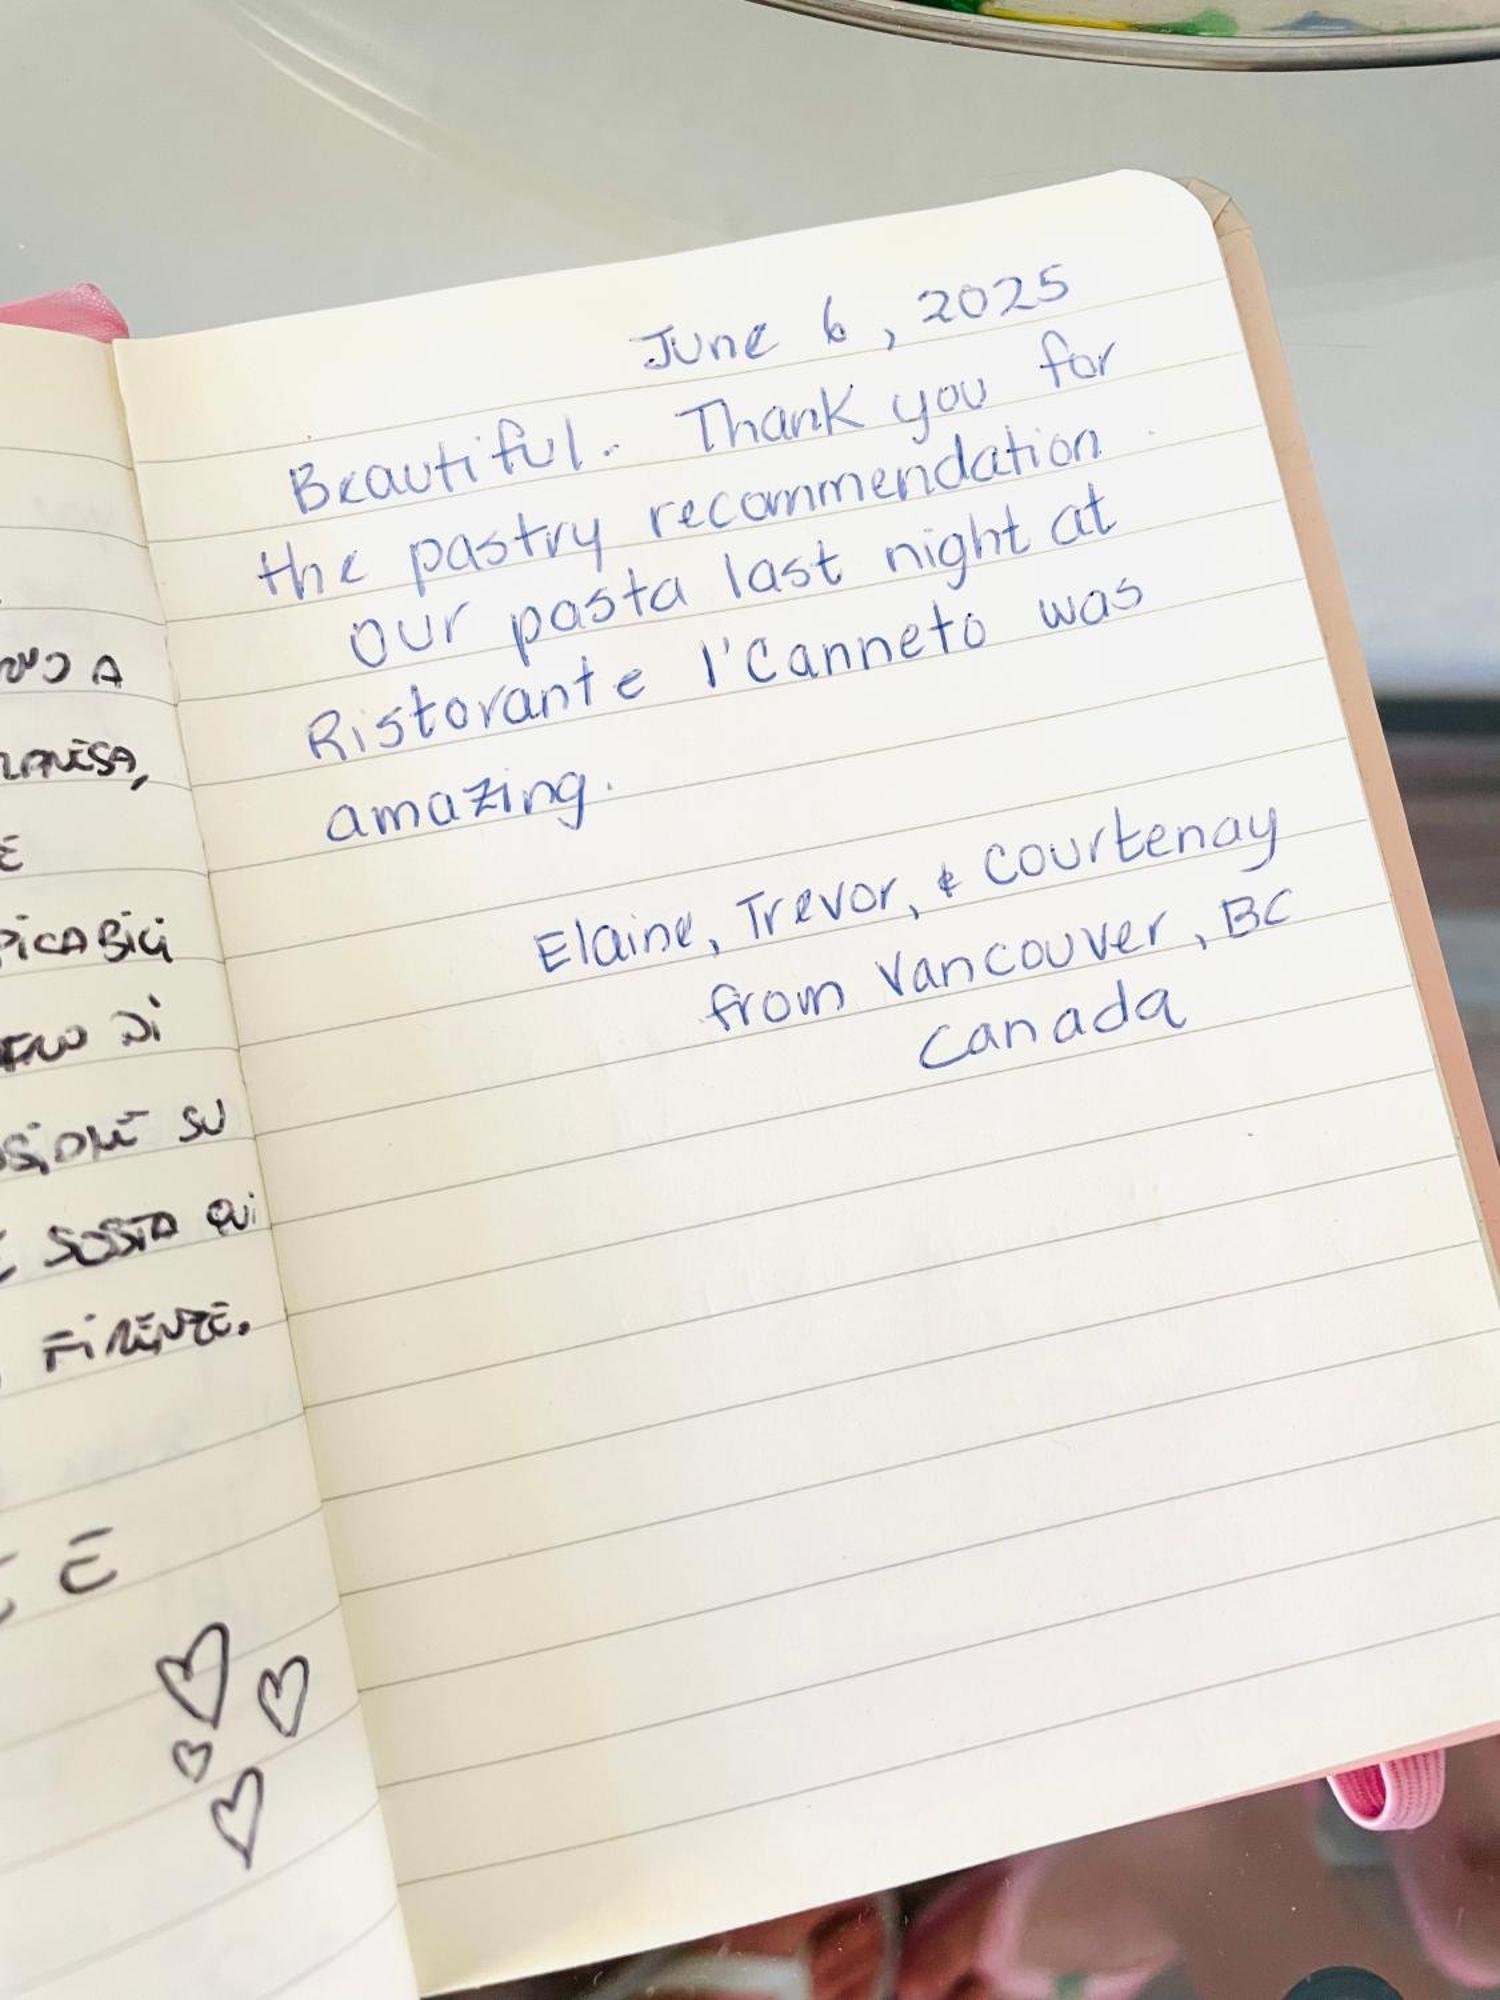 A
E
DI
SU
E SOSTA QUI
FIRENZE.
E E
June 6, 2025
Beautiful. Thank you for
the pastry recommendation.
Our pasta last night at
Ristorante l'Canneto was
amazing.
Elaine, Trevor, & Courtenay
from Vancouver, BC
Canada